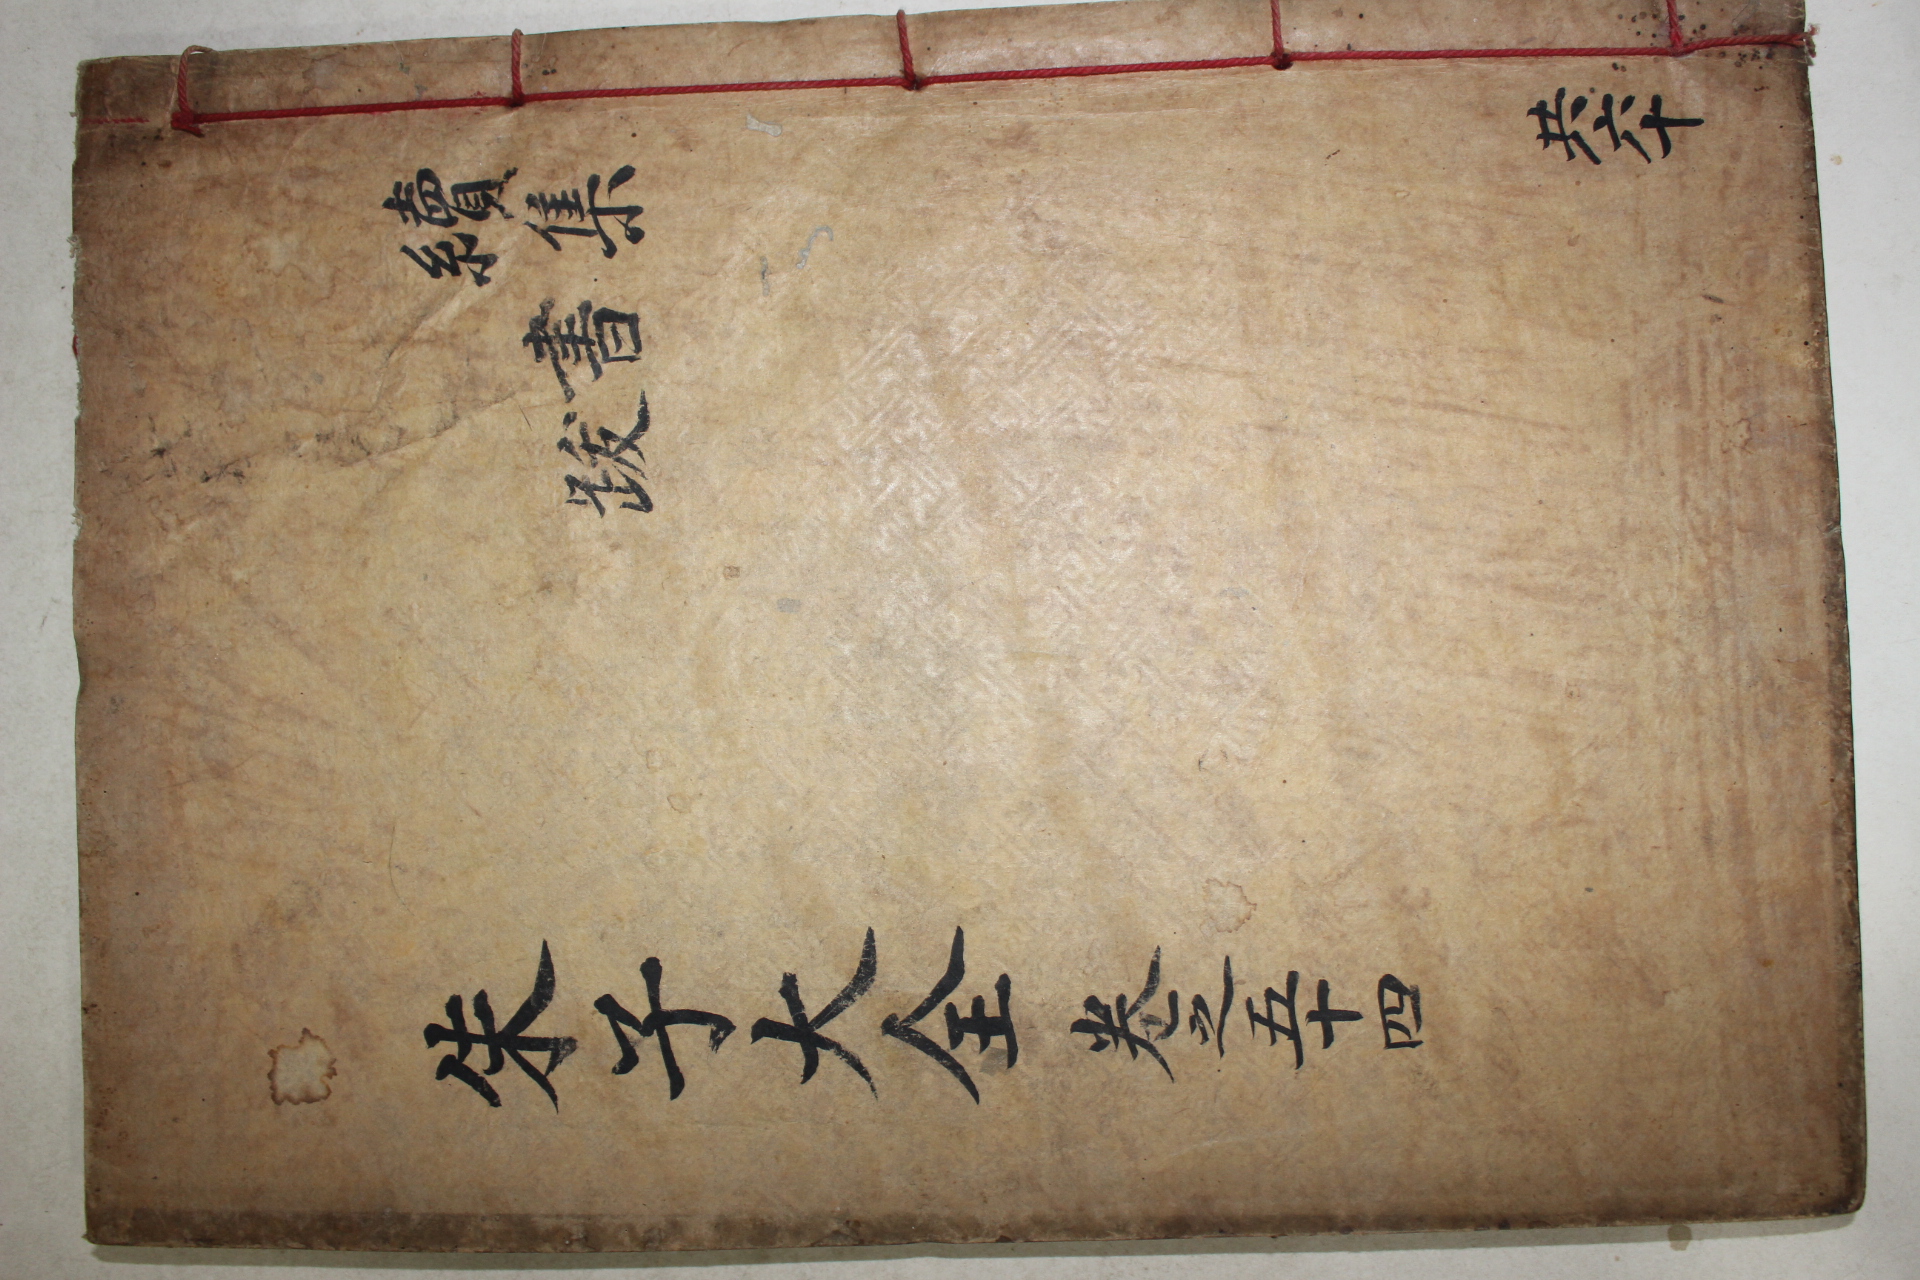 共六十
續集
書
跋
朱子大全 卷之五十四